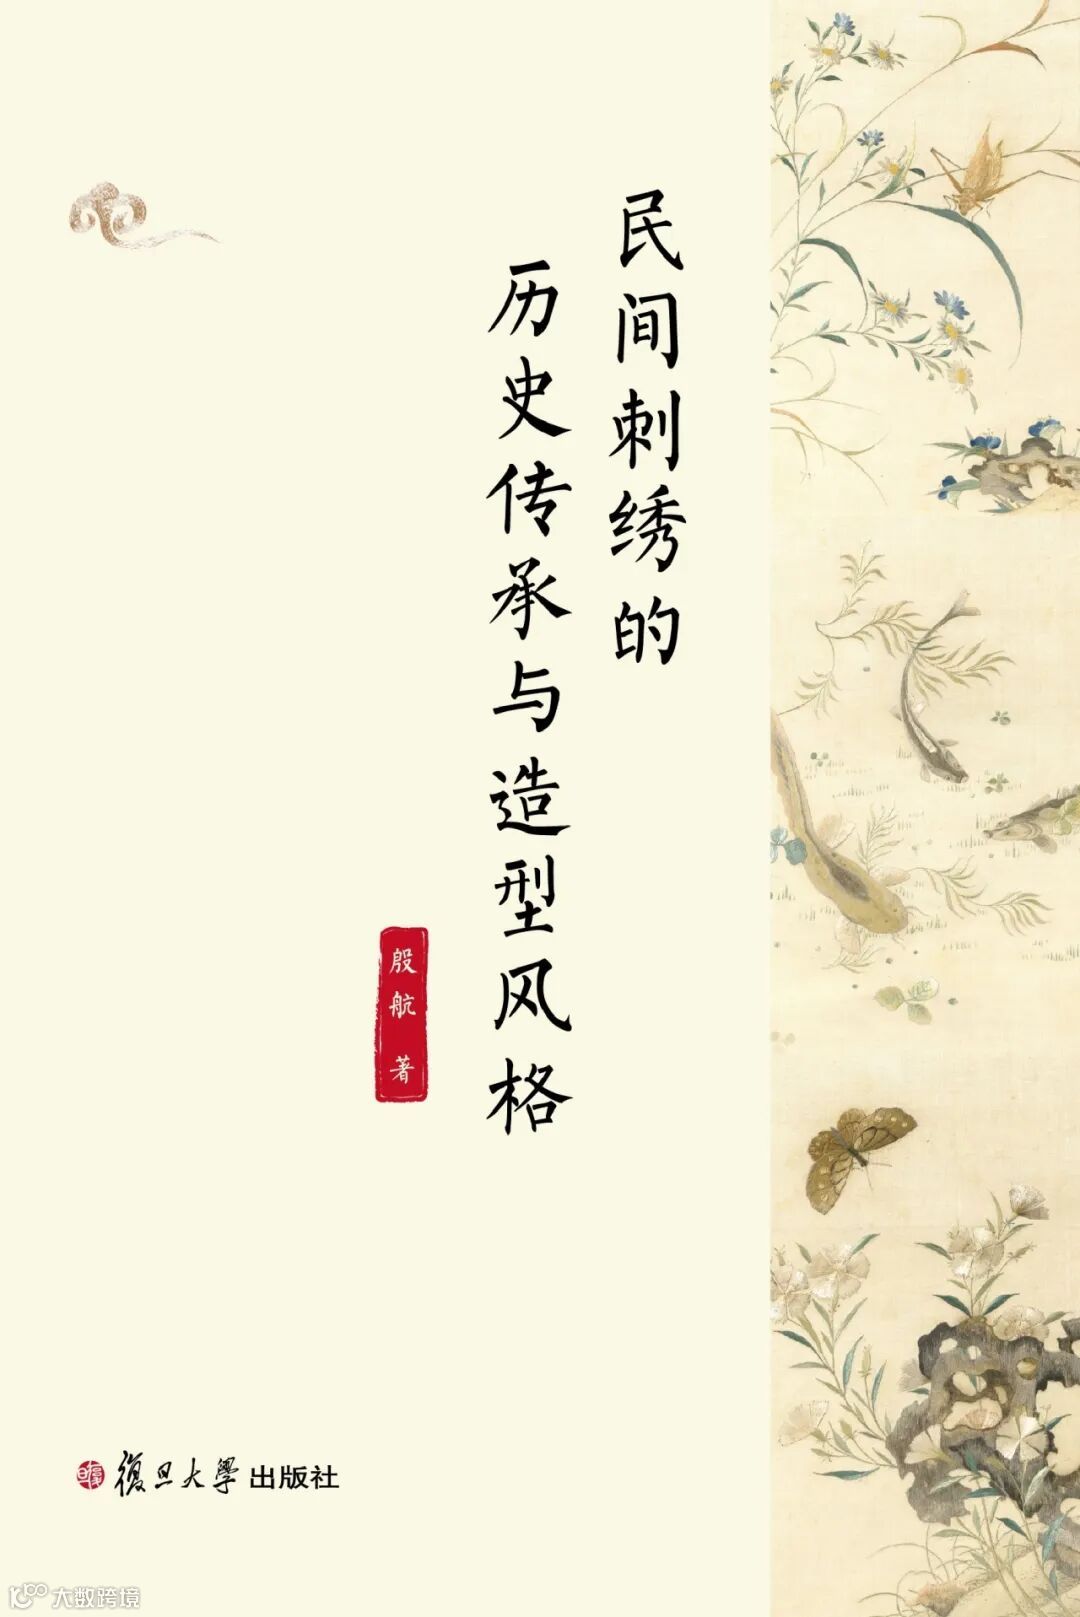 民间刺绣的
历史传承与造型风格
殷航 著
復旦大學出版社
大数跨境